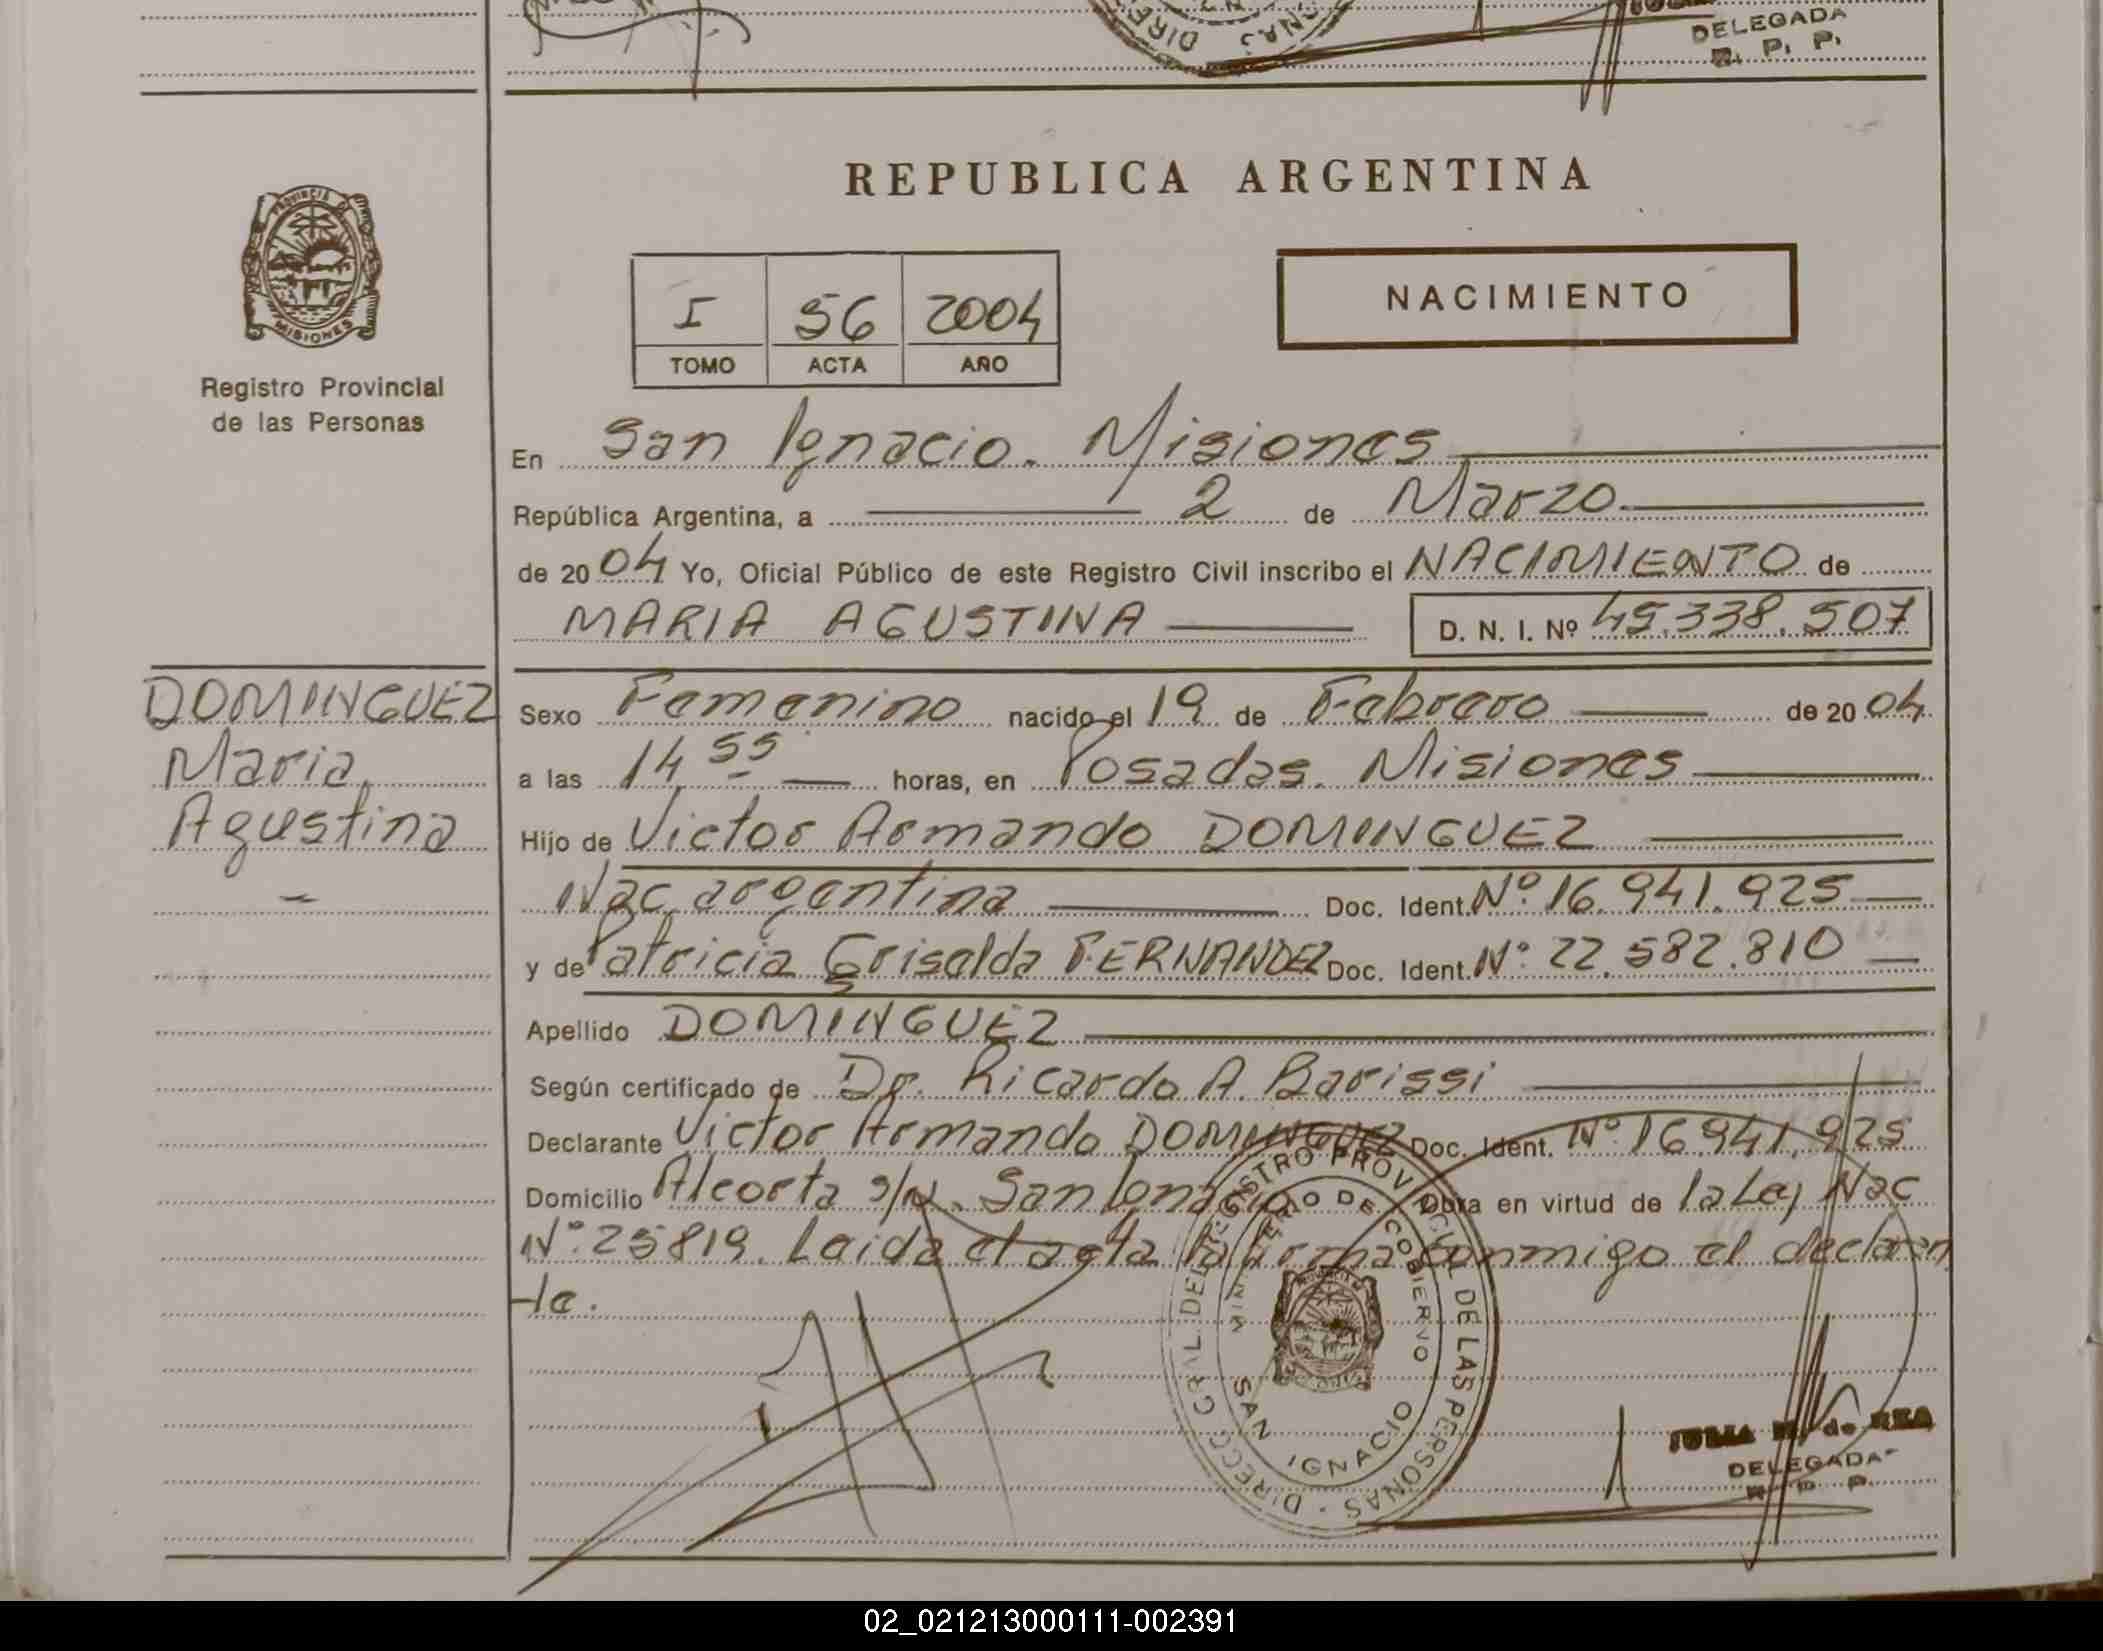 DELEGADA
R. P. P.
REPUBLICA ARGENTINA
PROVINCIA DE
MISIONES
Registro Provincial
de las Personas
I 56 2004
TOMO ACTA AÑO
NACIMIENTO
En San Ignacio. Misiones
República Argentina, a 2 de Marzo
de 2004 Yo, Oficial Público de este Registro Civil inscribo el NACIMIENTO de
MARIA AGUSTINA D. N. I. Nº 45.338.507
DOMINGUEZ
Maria
Agustina
Sexo Femenino nacido el 19 de Febrero de 2004
a las 14 55 horas, en Posadas. Misiones
Hijo de Victor Armando DOMINGUEZ
Nac. argentina Doc. Ident. Nº 16.941.925
y de Patricia Griselda FERNANDEZ Doc. Ident. Nº 22.582.810
Apellido DOMINGUEZ
Según certificado de Dr. Ricardo A. Barissi
Declarante Victor Armando DOMINGUEZ Doc. Ident. Nº 16.941.925
Domicilio Alcorta s/n. San Ignacio Obra en virtud de la Ley Nac
Nº 25819. Leida el acta la firma conmigo el declaran
te.
DIRECC GRAL DEL REGISTRO PROVINCIAL DE LAS PERSONAS
MINISTERIO DE GOBIERNO
SAN IGNACIO
JULIA de REA
DELEGADA
R. P. P.
02_021213000111-002391